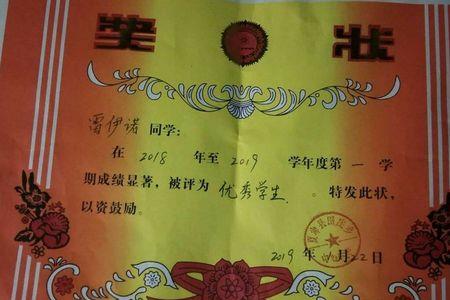 奖状
雷伊诺 同学:
在 2018 年至 2019 学年度第 一 学
期成绩显著，被评为 优秀学生 。特发此状，
以资鼓励。
2019 年 月 22 日